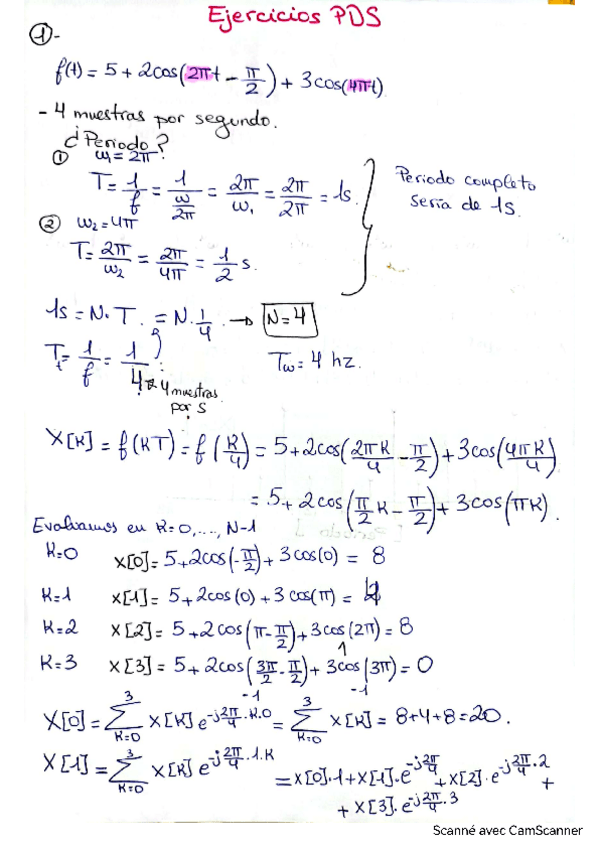 Ejercicios PDS
①-
f(t) = 5 + 2cos(2πt - π/2) + 3cos(4πt)
- 4 muestras por segundo.
¿Periodo?
① ω₁ = 2π
T = 1/f = 1/(ω/2π) = 2π/ω₁ = 2π/2π = 1s.
Periodo completo
seria de 1s.
② ω₂ = 4π
T = 2π/ω₂ = 2π/4π = 1/2 s.
1s = N·T. = N·1/4 → N=4
T = 1/f = 1/4 4 muestras
por s
Tω = 4 hz.
X[K] = f(KT) = f(K/4) = 5 + 2cos(2πK/4 - π/2) + 3cos(4πK/4)
= 5 + 2cos(π/2 K - π/2) + 3cos(πK).
Evaluamos en K=0,...., N-1
K=0 X[0] = 5 + 2cos(-π/2) + 3cos(0) = 8
K=1 X[1] = 5 + 2cos(0) + 3cos(π) = 4
K=2 X[2] = 5 + 2cos(π - π/2) + 3cos(2π) = 8
1
K=3 X[3] = 5 + 2cos(3π/2 - π/2) + 3cos(3π) = 0
-1 -1
X[0] = Σ³K=0 X[K] e^-j2π/4·K·0 = Σ³K=0 X[K] = 8+4+8 = 20.
X[1] = Σ³K=0 X[K] e^-j2π/4·1·K = X[0]·1 + X[1]·e^-j2π/4 + X[2]·e^-j2π/4·2 +
+ X[3]·e^-j2π/4·3
Scanné avec CamScanner